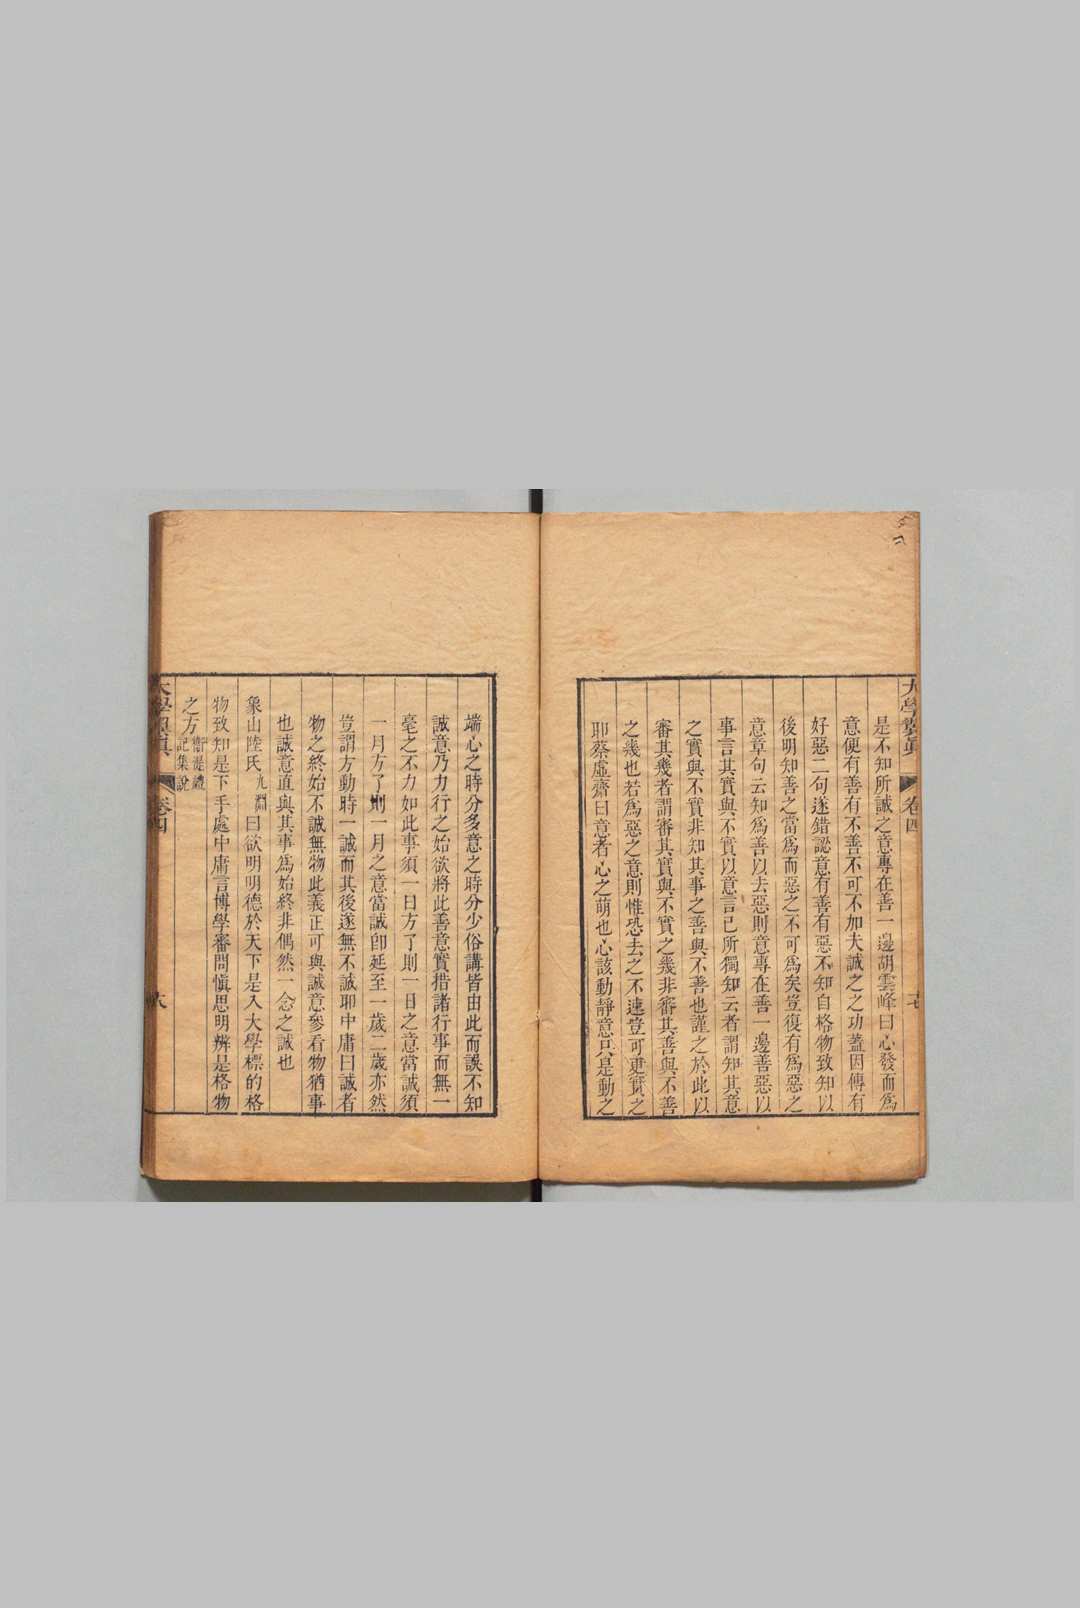 大學翼眞
卷四
是不知所誠之意專在善一邊胡雲峰曰心發而爲
意便有善有不善不可不加夫誠之之功蓋因傳有
好惡二句遂錯認意有善有惡不知自格物致知以
後明知善之當爲而惡之不可爲矣豈復有爲惡之
意章句云知爲善以去惡則意專在善一邊善惡以
事言其實與不實以意言已所獨知云者謂知其意
之實與不實非知其事之善與不善也謹之於此以
審其幾者謂審其實與不實之幾非審其善與不善
之幾也若爲惡之意則惟恐去之不速豈可更實之
耶蔡虛齋曰意者心之萌也心該動靜意只是動之
端心之時分多意之時分少俗講皆由此而誤不知
誠意乃力行之始欲將此善意實措諸行事而無一
毫之不力如此事須一日方了則一日之意當誠須
一月方了則一月之意當誠卽延至一歲二歲亦然
豈謂方動時一誠而其後遂無不誠耶中庸曰誠者
物之終始不誠無物此義正可與誠意參看物猶事
也誠意直與其事爲始終非偶然一念之誠也
象山陸氏九淵曰欲明明德於天下是入大學標的格
物致知是下手處中庸言博學審問愼思明辨是格物
之方衞湜禮記集說
大學翼眞
卷四